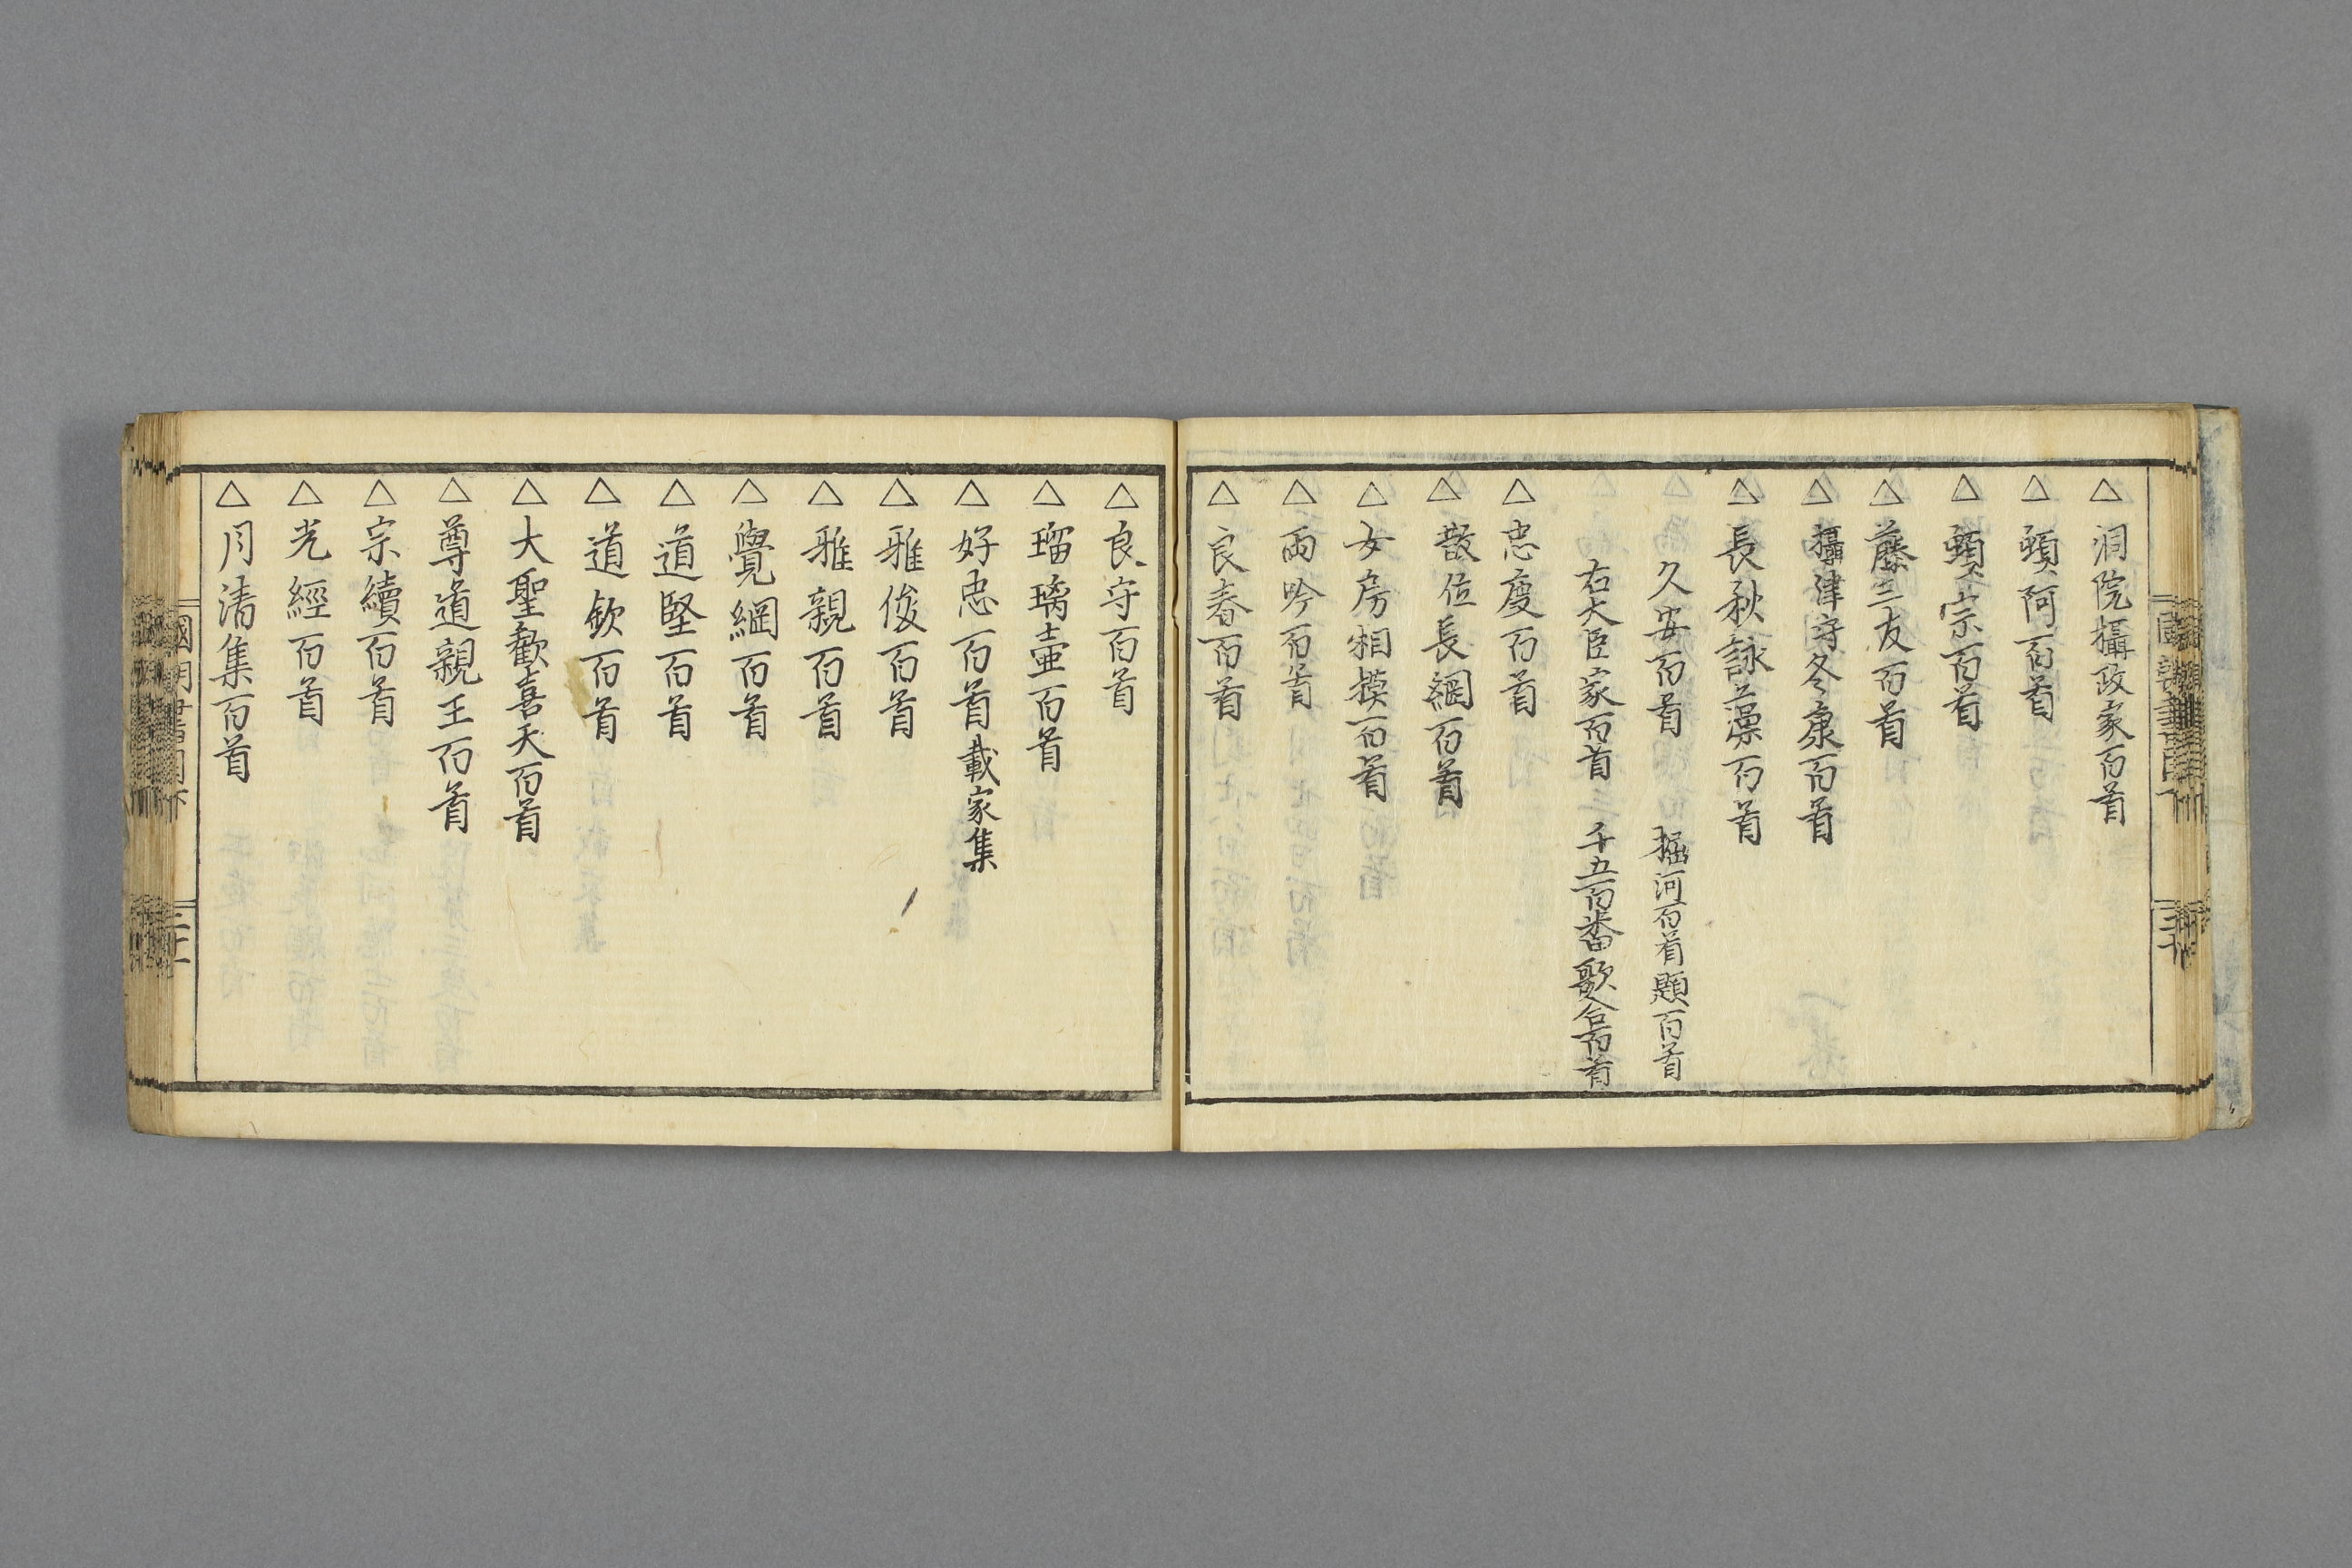 △洞院攝政家百首
△頓阿百首
△頓宗百首
△藤三友百首
△攝津守冬康百首
△長秋詠藻百首
久安百首　堀河百首題百首
右大臣家百首　千五百番歌合百首
△忠慶百首
△散位長綱百首
△女房相模百首
△兩吟百首
△良春百首
△良守百首
△瑠璃壺百首
△好忠百首載家集
△雅俊百首
△雅親百首
△覺綱百首
△道堅百首
△道欽百首
△大聖歡喜天百首
△尊道親王百首
△宗續百首
△光經百首
△月清集百首